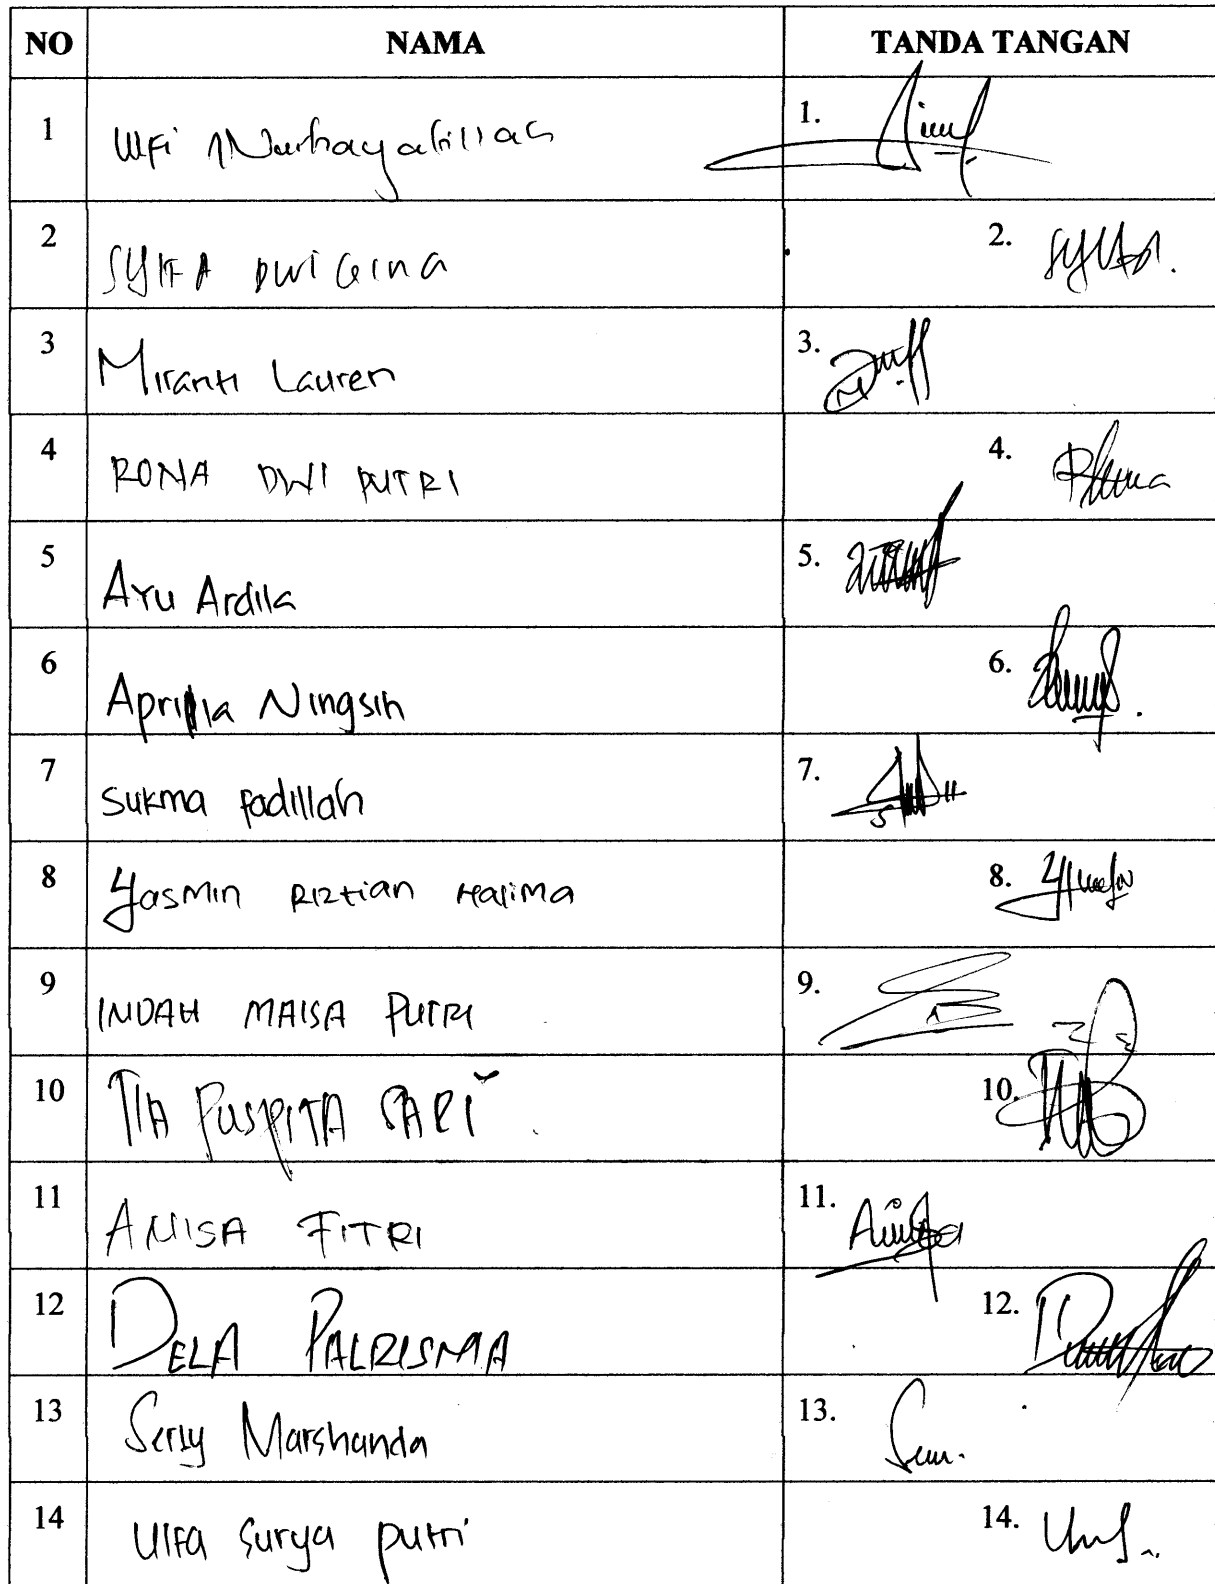 NO NAMA TANDA TANGAN
1 Ulfi 1.
2 SYIFA DWI GINA 2.
3 Miranti Lauren 3.
4 RONA DWI PUTRI 4.
5 Ayu Ardila 5.
6 Aprilia Ningsih 6.
7 Sukma Fadillah 7.
8 Yasmin Riztian Halima 8.
9 INDAH MAISA PUTRI 9.
10 TIA PUSPITA SARI 10.
11 ANISA FITRI 11.
12 DELA PALRISMA 12.
13 Serly Marshanda 13.
14 Ulfa Surya putri 14.